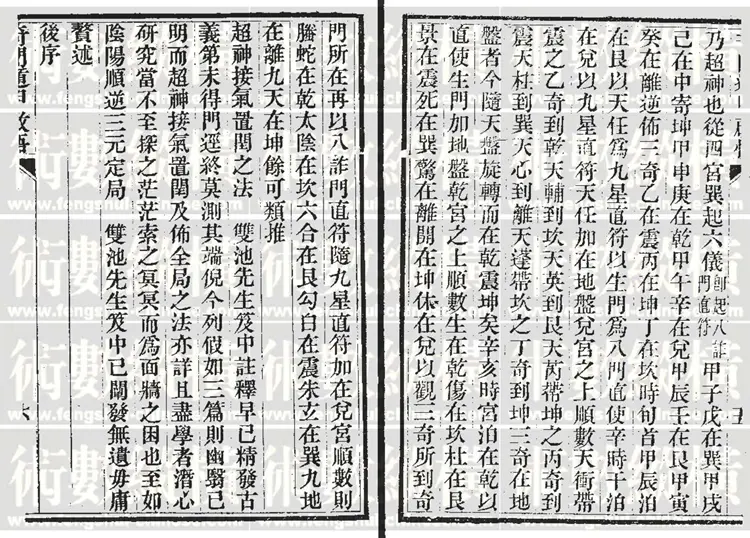 乃超神也從四宮巽起六儀即起八詐門直符甲子戊在巽甲戌
己在中寄坤甲申庚在乾甲午辛在兌甲辰壬在艮甲寅
癸在離逆佈三奇乙在震丙在坤丁在坎時旬首甲辰泊
在艮以天任為九星直符以生門為八門直使辛時干泊
在兌以九星直符天任加在地盤兌宮之上順數天衝帶
震之乙奇到乾天輔到坎天英到艮天芮帶坤之丙奇到
震天柱到巽天心到離天蓬帶坎之丁奇到坤三奇在地
盤者今隨天盤旋轉而在乾震坤矣辛亥時宮泊在乾以
直使生門加地盤乾宮之上順數生在乾傷在坎杜在艮
景在震死在巽驚在離開在坤休在兌以觀三奇所到奇
門所在再以八詐門直符隨九星直符加在兌宮順數則
螣蛇在乾太陰在坎六合在艮勾白在震朱玄在巽九地
在離九天在坤餘可類推
超神接氣置閏之法 雙池先生笈中註釋早已精發古
義第未得門逕終莫測其端倪今列假如三篇則幽翳已
明而超神接氣置閏及佈全局之法亦詳且盡學者潛心
研究當不至探之茫茫索之冥冥而為面牆之困也至如
陰陽順逆三元定局 雙池先生笈中已闡發無遺毋庸
贅述
後序
六